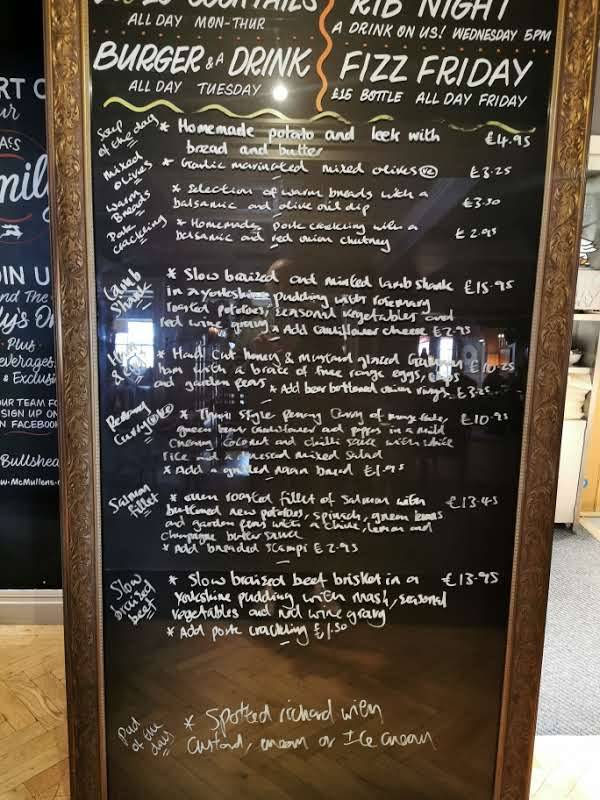 COCKTAILS
ALL DAY MON-THUR
RIB NIGHT
A DRINK ON US! WEDNESDAY 5PM
BURGER & A DRINK
ALL DAY TUESDAY
FIZZ FRIDAY
£15 BOTTLE ALL DAY FRIDAY
Soup of the day * Homemade potato and leek with £4.95
bread and butter
Mixed olives * Garlic marinated mixed olives ve £3.25
Warm Breads * Selection of warm breads with a £3.50
balsamic and olive oil dip
Pork crackling * Homemade pork crackling with a £2.95
balsamic and red onion chutney
Lamb Shank * Slow braized and minted lamb shank £15.95
in a yorkshire pudding with rosemary
roasted potatoes, seasonal vegetables and
red wine gravy * Add cauliflower cheese £2.95
* Hand cut honey & mustard glazed £10.25
ham with a brace of free range eggs,
and garden peas * Add beer battered onion rings £3.25
Curry * Thai style curry of £10.95
green bean cauliflower and pepper in a mild
creamy coconut and chilli sauce with white
rice and a dressed mixed salad
* Add a grilled naan bread £1.95
Salmon fillet * oven roasted fillet of salmon with £13.45
buttered new potatoes, spinach, green beans
and garden peas with a chive, lemon and
champagne butter sauce
* Add breaded scampi £2.95
Slow braized beef * Slow braized beef brisket in a £13.95
Yorkshire pudding with mash, seasonal
vegetables and red wine gravy
* Add pork crackling £1.50
Pud of the day * Spotted richard with
custard, cream or Ice cream
OIN U
nd The
dy's O
Plus
everages
& Exclusi
OUR TEAM FO
SIGN UP ON
N FACEBOOK
Bullshea
w.McMullens.